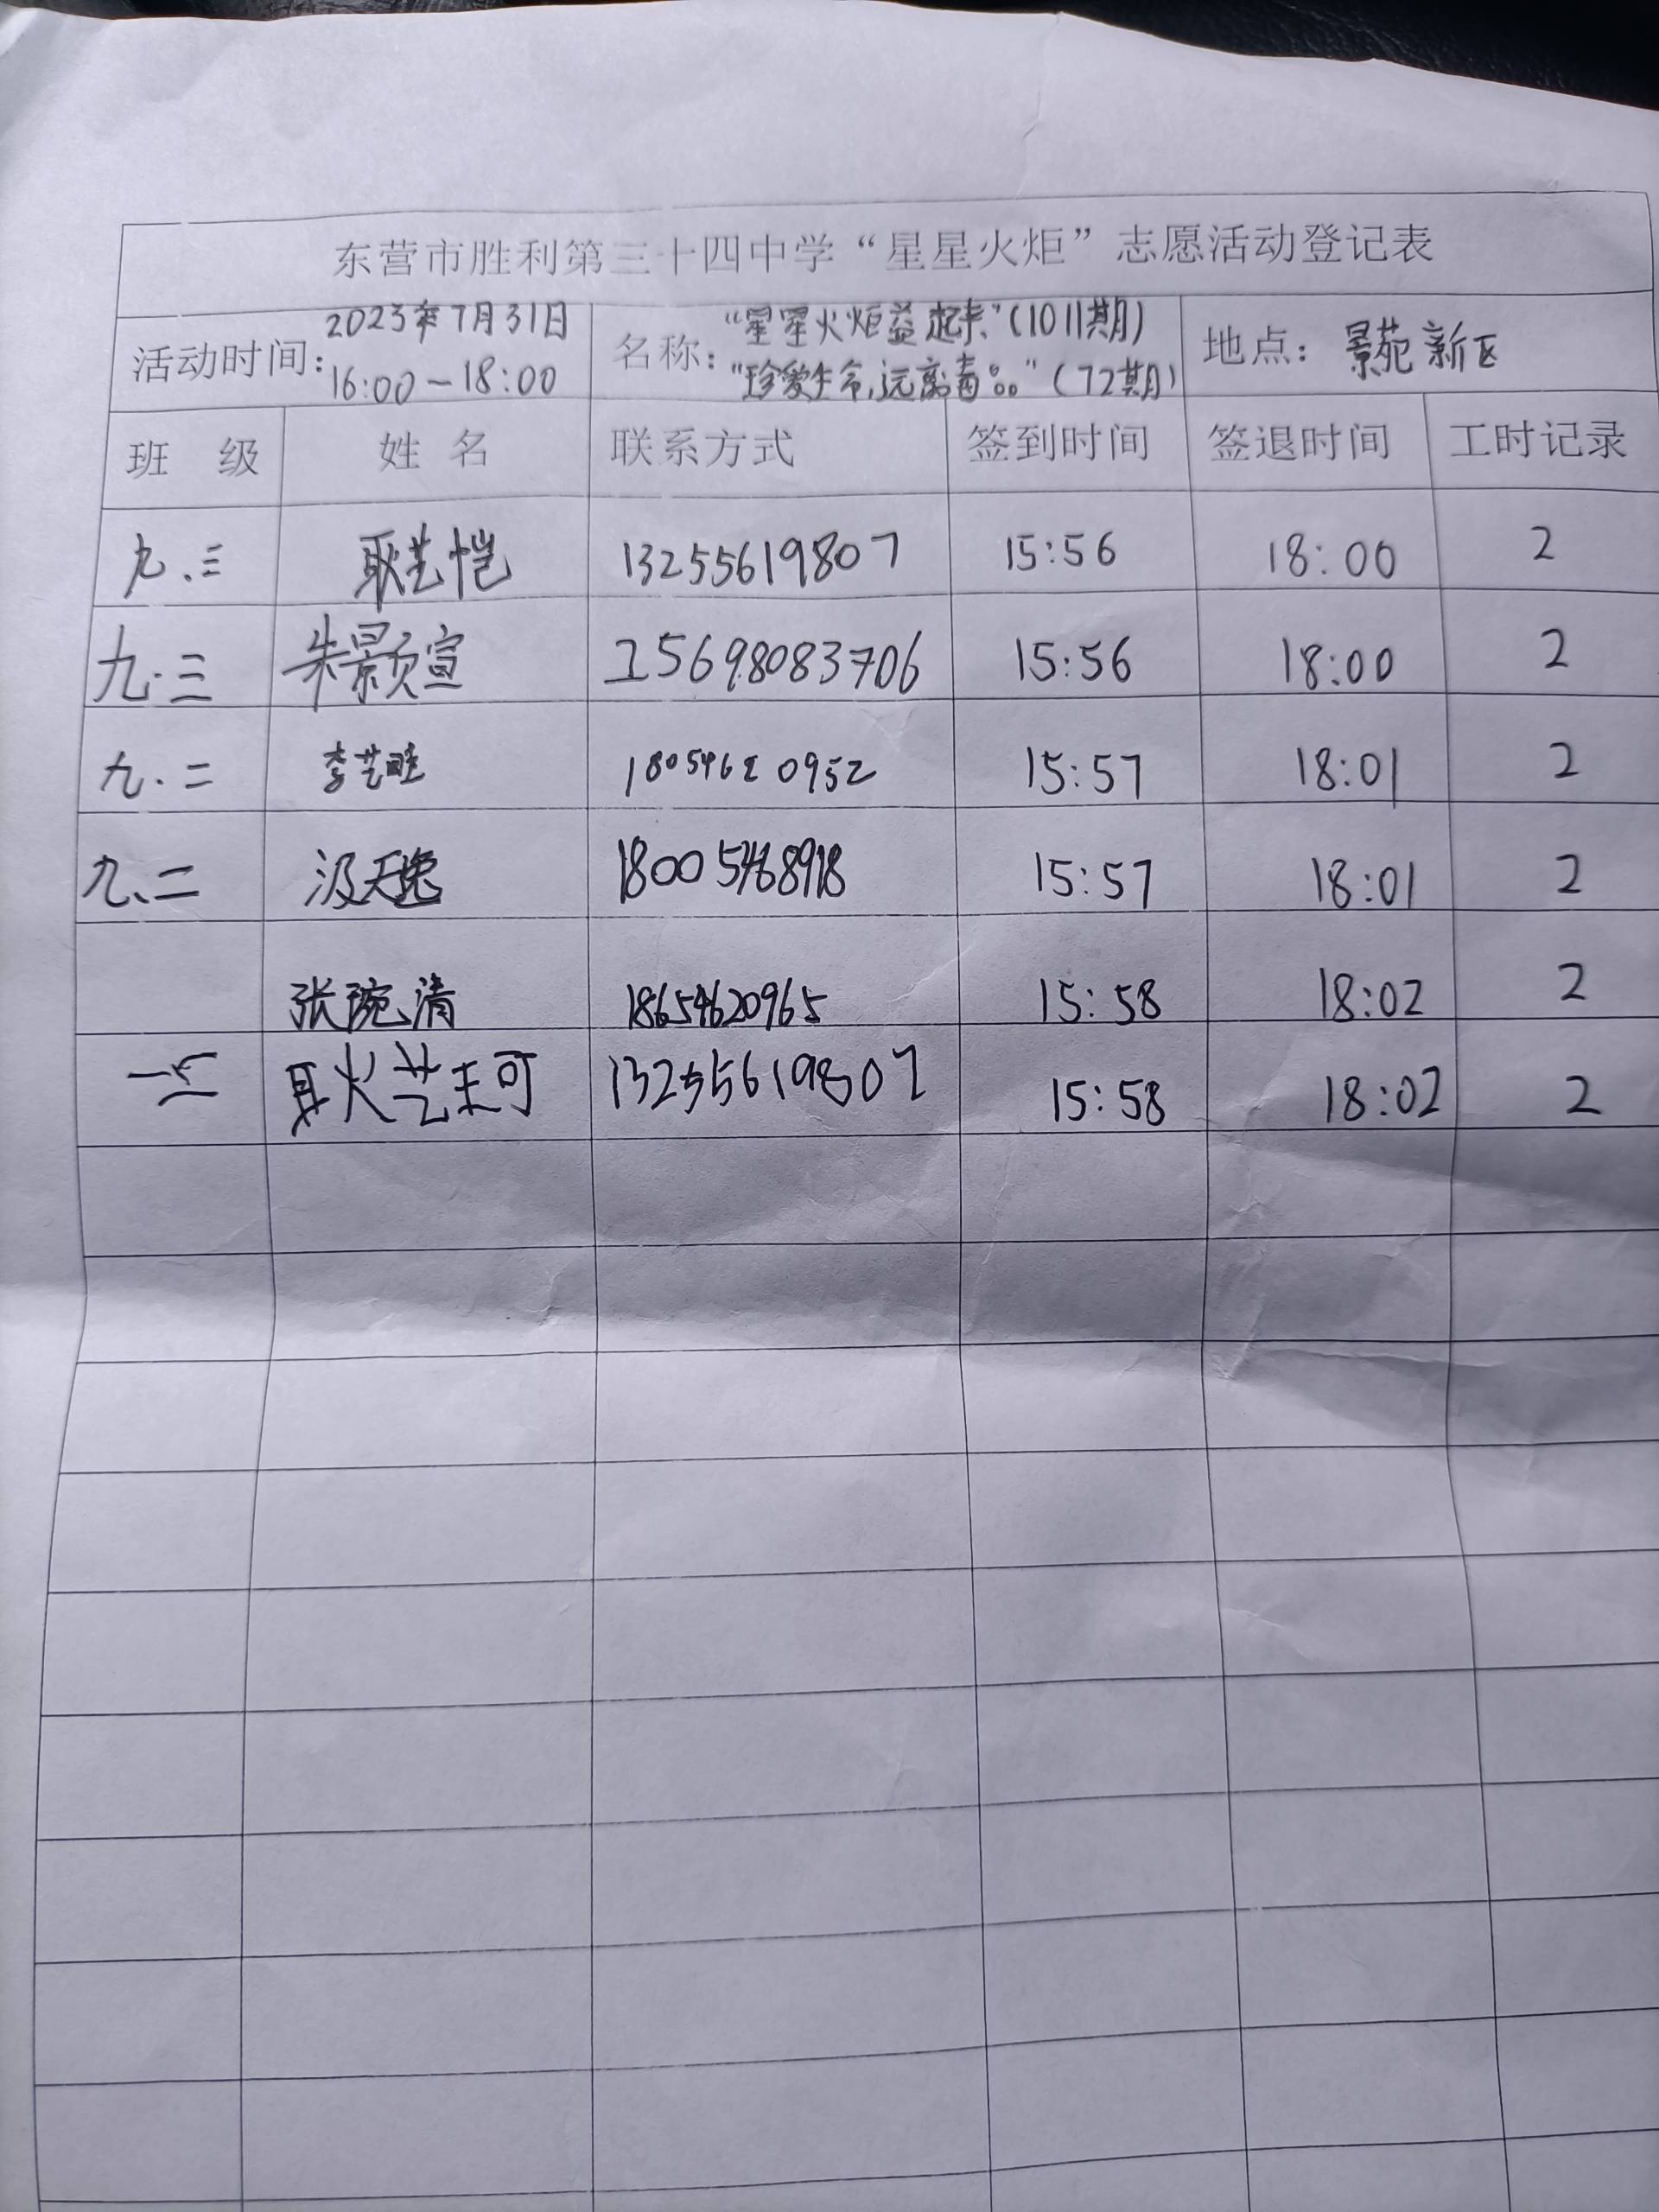 东营市胜利第三十四中学“星星火炬”志愿活动登记表
活动时间：2023年7月31日 16:00-18:00 名称：“星星火炬益起来”(1011期) “珍爱生命,远离毒品”(72期) 地点：景苑新区
班 级 姓 名 联系方式 签到时间 签退时间 工时记录
九.三 耿艺恺 13255619807 15:56 18:00 2
九.三 朱颢宣 15698083706 15:56 18:00 2
九.二 李艺 0952 15:57 18:01 2
九、二 汲天逸 18005468918 15:57 18:01 2
张琬清 18654620965 15:58 18:02 2
耿艺珂 13255619807 15:58 18:02 2